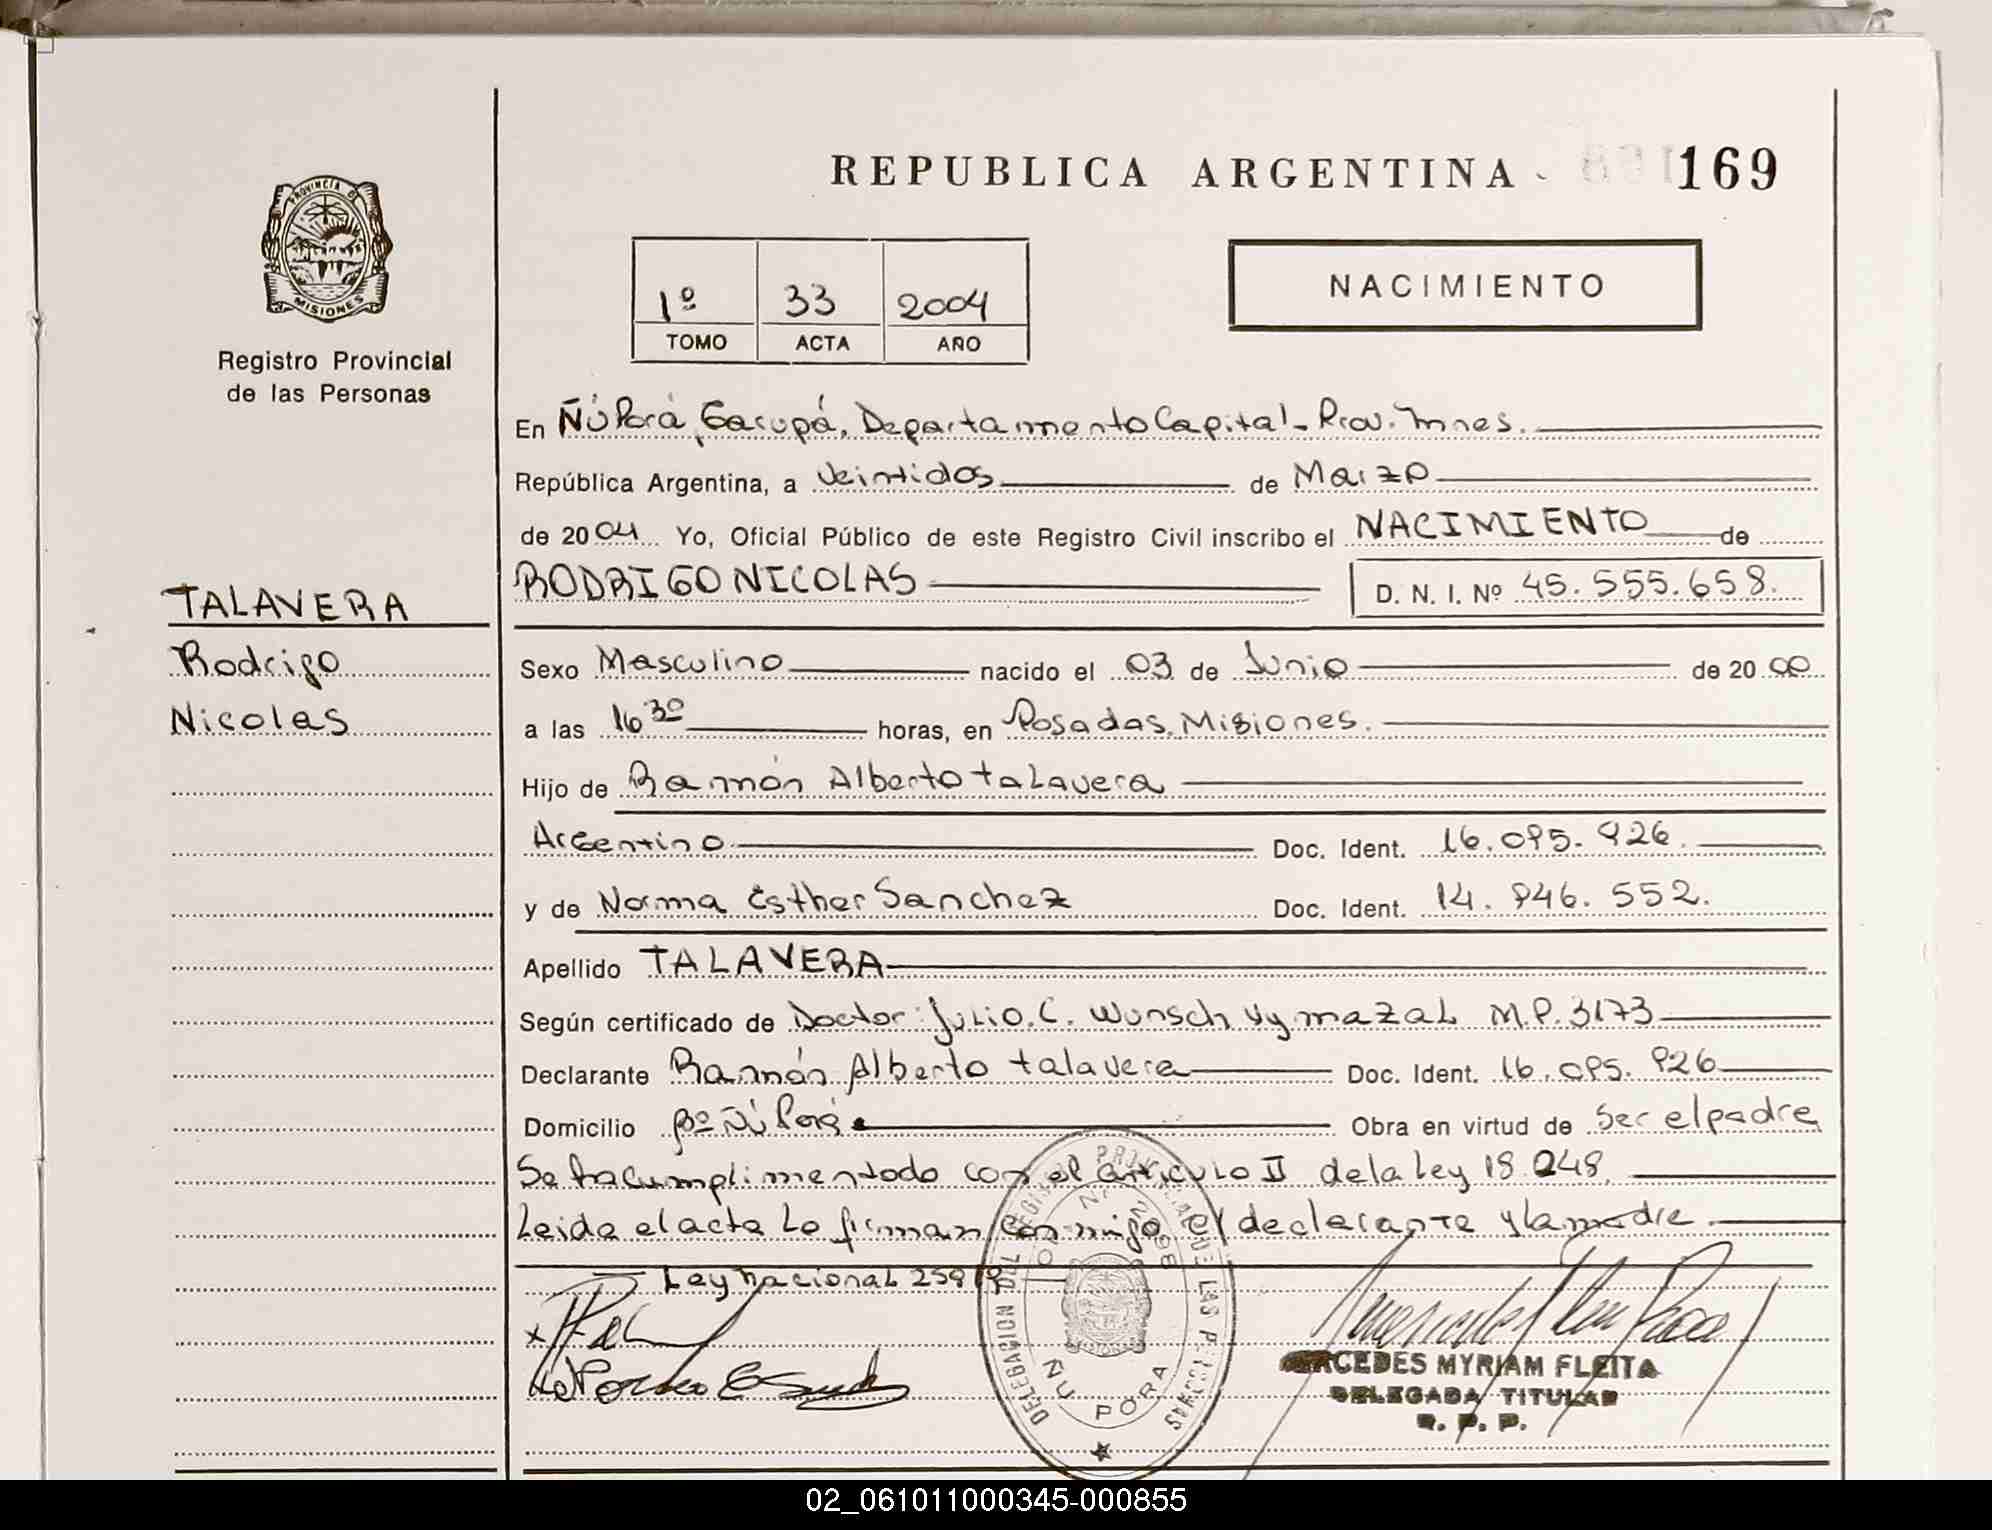 REPUBLICA ARGENTINA 169
PROVINCIA DE
MISIONES
Registro Provincial
de las Personas
1º 33 2004
TOMO ACTA AÑO
NACIMIENTO
En Ñú Porá, Garupá, Departamento Capital - Prov. Mnes.
República Argentina, a Veintidos de Marzo
de 2004 Yo, Oficial Público de este Registro Civil inscribo el NACIMIENTO de
RODRIGO NICOLAS D. N. I. Nº 45.555.658.
TALAVERA
Rodrigo
Nicolas
Sexo Masculino nacido el 03 de Junio de 2000
a las 16 30 horas, en Posadas, Misiones.
Hijo de Ramón Alberto Talavera
Argentino Doc. Ident. 16.095.926.
y de Norma Esther Sanchez Doc. Ident. 14.946.552.
Apellido TALAVERA
Según certificado de Doctor: Julio. C. Wunsch Vymazal M.P. 3173
Declarante Ramón Alberto Talavera Doc. Ident. 16.095.926
Domicilio Bº Ñú Porá Obra en virtud de Ser el padre
Se ha cumplimentado con el articulo II de la Ley 18.248.
Leida el acta Lo firman conmigo el declarante y la madre.
Ley Nacional 25819
DELEGACION DEL REGISTRO PROVINCIAL DE LAS PERSONAS
ÑU PORA
MERCEDES MYRIAM FLEITA
DELEGADA TITULAR
R. P. P.
02_061011000345-000855